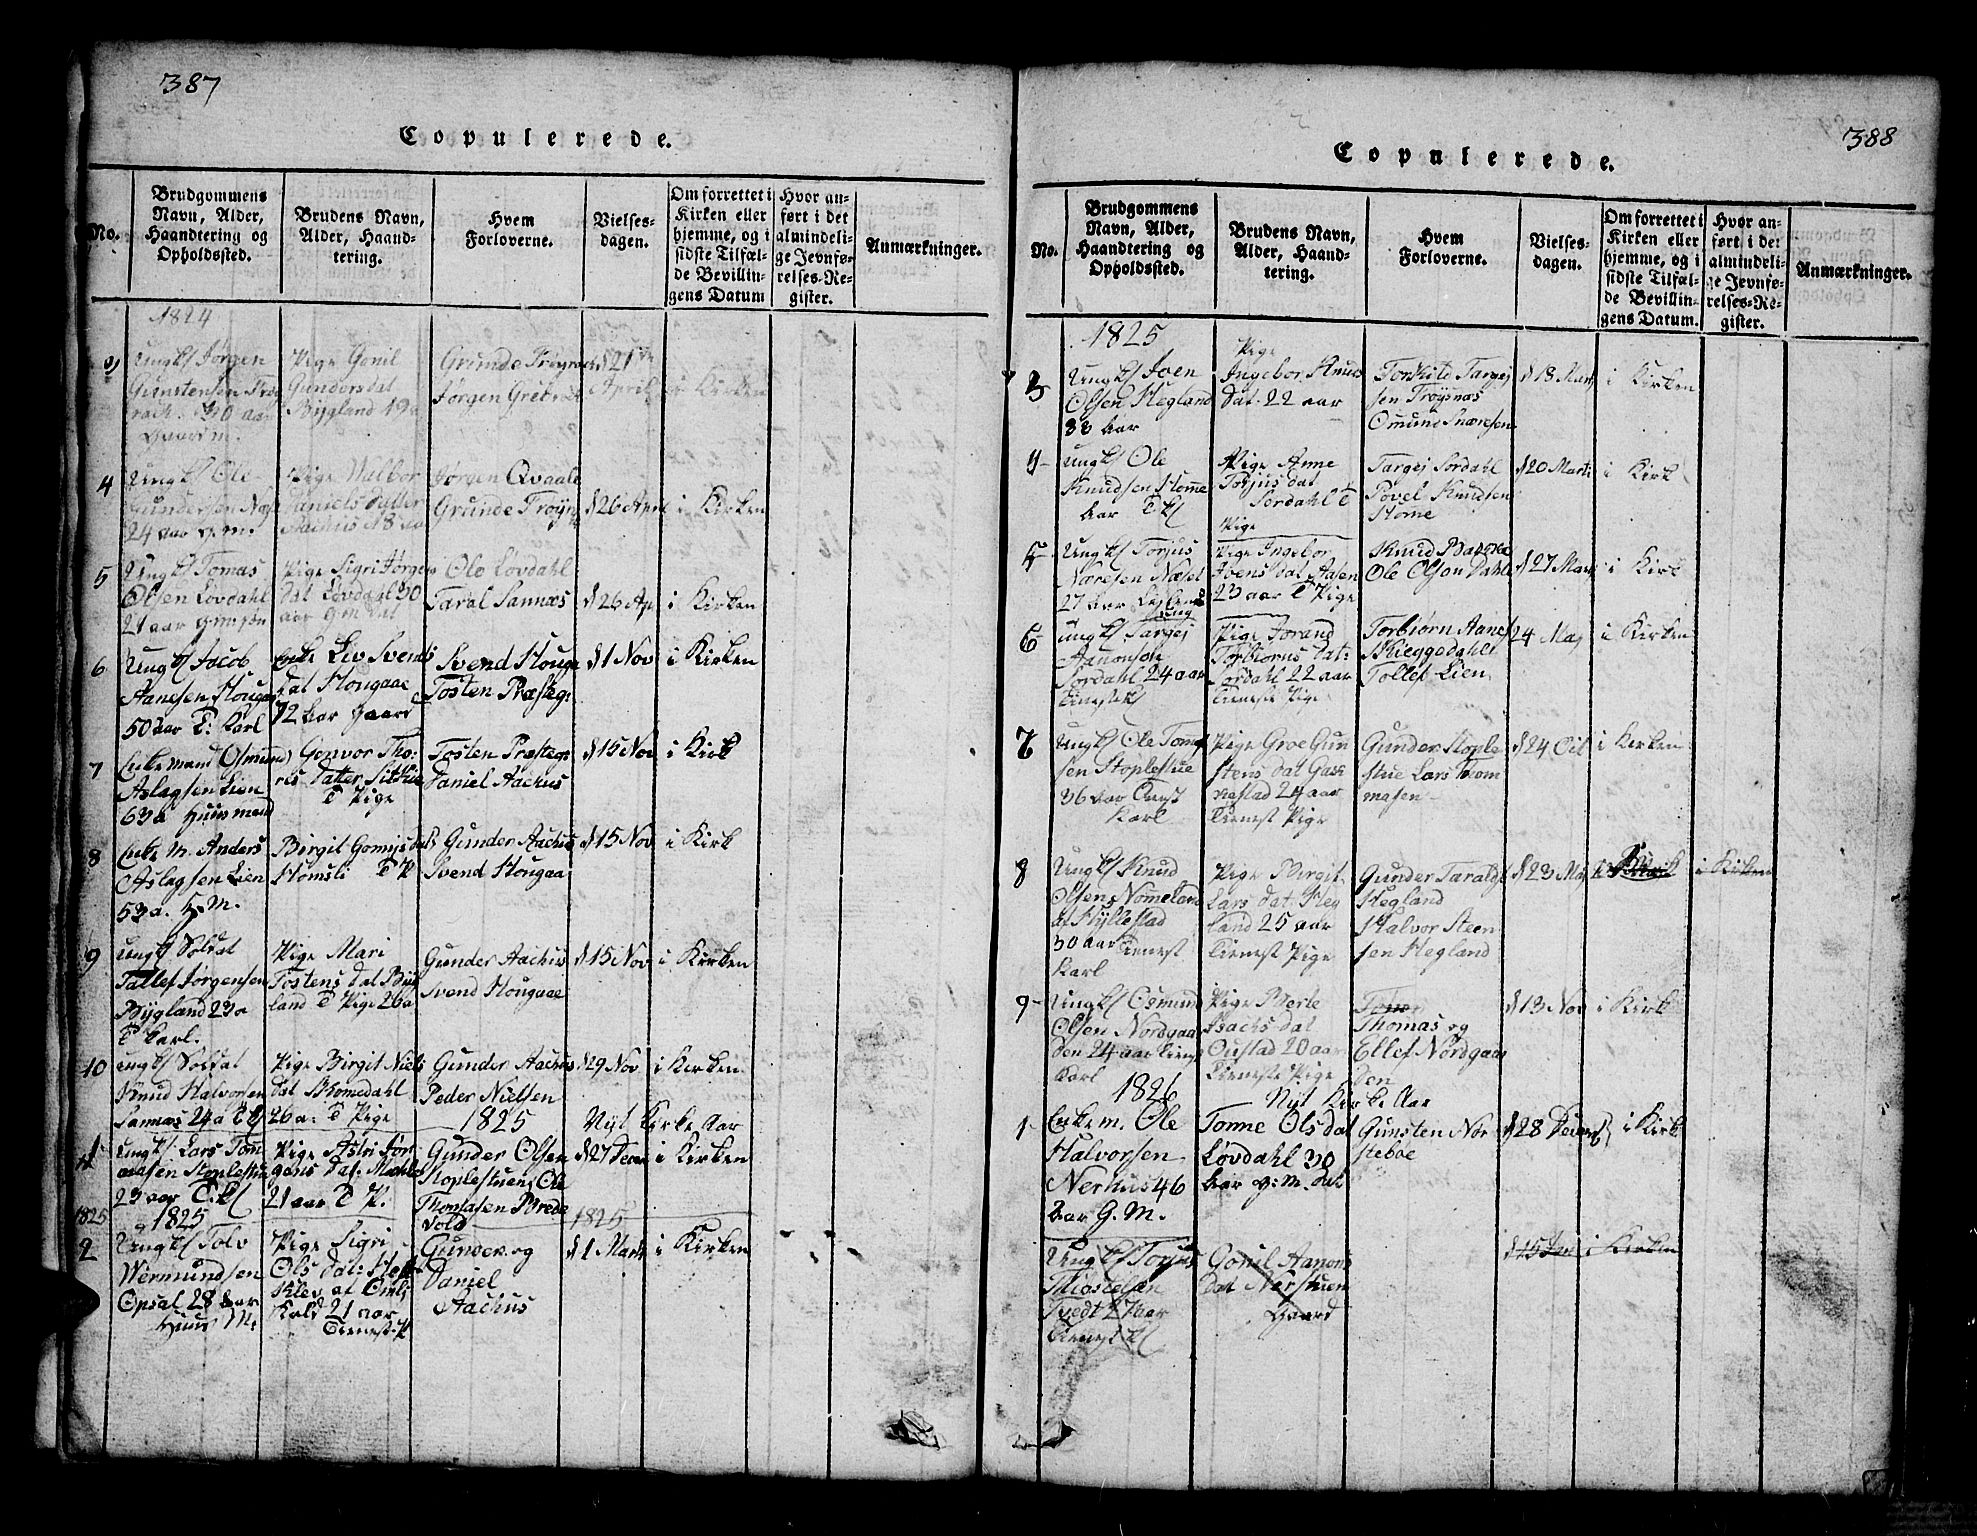 387
Copulerede.
No.
Brudgommens
Navn, Alder,
Haandtering og
Opholdssted.
Brudens Navn,
Alder, Haand-
tering.
Hvem
Forloverne.
Vielses-
dagen.
Om forrettet i
Kirken eller
hjemme, og i
sidste Tilfæl-
de Bevillin-
gens Datum
Hvor an-
ført i det
almindeli-
ge Jevnfø-
relses-Re-
gister.
Anmærkninger.
1824
3)
Ungk Jørgen
Gunstensen
30 aar
Gaardm.
Pige Gonil
Gunders dat
Bygland 19a
Grunde
Jørgen
d 21de
April
i Kirken
4
Ungk Ole
Gundersen
24 aar g.m.
Pige Walbor
Daniels dotter
Aachus 18 aar
Jørgen Qvaale
Grunde Frøyn
d 26 Apri
i Kirken
5
Ungk Tomas
Olsen Lovdahl
21 aar
Pige Sigri Jørgens
Dat Lovdahl 30
aar gm dat
Ole Lovdahl
Taral Sannæs
d 26 Ap
i Kirken
6
Ungk Jacob
Aanesen Hougaa
50 aar T: Karl
Enke Liv Svends
dat Hougaae
72 aar
Svend Houga
Tosten Præsteg:
d 1 Nov
i Kirken
7
Enkemand Osmund
Aslagsen Lien
63a Huusmand
Gonvor Tho:
res Datter
T Pige
Tosten Præsteg:
Daniel Aachus
d 15 Nov
i Kirk
8
Enke M. Anders
Aslagsen Lien
53a. H.M.
Birgit Gonnjs dat
Homsli T P
Gunder Aachus
Svend Hougaa
d 15 Nov
i Kirk
9
Ungk Soldat
Tallef Jørgensen
Bygland 23a
T Karl.
Pige Mari
Tostens dat Byg
land T Pige 26a
Gunder Aachus
Svend Hougaae
d 15 Nov
i Kirken
10
Ungk Soldat
Knud Halvorsen
Sannæs 24a
Pige Birgit Niels
dat Bomedahl
26a: T Pige
Gunder Aachus
Peder Nielsen
d 29 Nov
i Kirken
1825
Nyt Kirke Aar
1
Ungk: Lars Tom
masen Stoplestue
23 aar T.k
Pige Astri Jør
gens dat:
21 aar T P.
Gunder Olsen
Stoplestuen, Ole
Thomasen Brede
vold
d 27 Decem
i Kirken
1825
1825
1825
2
Ungk Tolv
Wermundsen
Opsal 28 aar
Huus M.
Pige Sigri
Ols dat:
Klev
21 aar
Tieneste P
Gunder og
Daniel
Aachus
d 1 Marts
i Kirken
388
Copulerede.
No.
Brudgommens
Navn, Alder,
Haandtering og
Opholdssted.
Brudens Navn,
Alder, Haand-
tering.
Hvem
Forloverne.
Vielses-
dagen.
Om forrettet i
Kirken eller
hjemme, og i
sidste Tilfæl-
de Bevillin-
gens Datum.
Hvor an-
ført i det
almindeli-
ge Jevnfø-
relses-Re-
gister.
Anmærkninger.
1825
3
Ungk Joen
Olsen Hegland
33 Aar
Pige
Ingebor Knuds
dat. 22 aar
Torkild Targej
sen Frøysnæs
Omund Snaresen
d 18 Mart
i Kirken
4
Ungk Ole
Knudsen Home
Aar T k
Pige Anne
Torjus dat
Sordahl T
Pige
Targej Sordahl
Povel Knudsen
Home
d 20 Marti
i Kirk
5
Ungk Torjus
Næresen Næset
27 Aar
Pige Ingebor
Joens dat Aasen
23 aar T Pige
Knud
Ole Olson Dahle
d 27 Mart
i Kirk
6
Ungk Targej
Aanonsen
Sordahl 24 aar
Tienestek
Pige Jorand
Torbiorns dat:
Sordahl 22 aar
Tieneste Pige
Torbiørn Aanes
Skieggedahl
Tollef Lien
24 Maj
i Kirken
7
Ungk Ole Tomas
sen Stoplestue
36 aar
Karl
Pige Groe Gun
stens dat
24 aar
Tienest Pige
Gunder Stople
stue Lars Thom
masen
d 24
i Kirken
8
Ungk Knud
Olsen Nomeland
af Hyllestad
30 Aar Tienest
Karl
Pige Birgit
Lars dat. Heg
land 25 aar
Tienest Pige
Gunder Tarald
Hegland
Halvor Steen
sen Hegland
d 23 Maj
i Kirken
9
Ungk Osmund
Olsen Nordgaar
den 24 aar Tienes
Karl
Pige Berte
Isachs dat
Oustad 20 aar
Tieneste Pige
Thomas og
Ellef Nordgaar
den
d 13 Nov
i Kirk
1826
Nyt Kirke Aar
1
Enkem. Ole
Halvorsen
Nerhus 46
Aar G.M.
Tonne Ols dat
Løvdahl 30
Aar g:M. dat
Gunsten Nor
steboe
d 28 Decemb
i Kirk
Ungk Torjus
Tvedt 27 Aar
Tienest k
Gonil Aanons
dat Nørstuen
Gaard
d 15 Jan
i Kirken